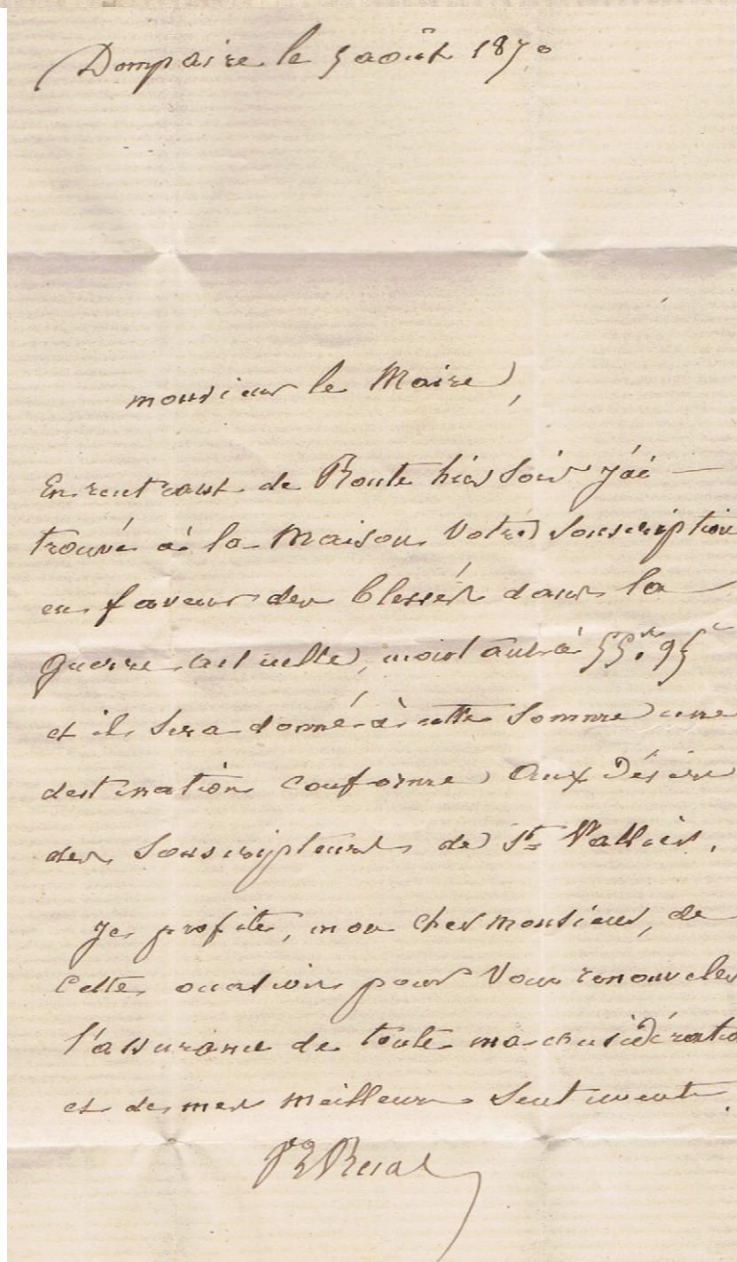 Dompaire le 5 août 1870
monsieur le Maire,
En rentrant de Route hier Soir j'ai
trouvé à la Maison Votre Souscription
en faveur des blessés dans la
guerre actuelle, montant à 55.95
et il sera donné à cette Somme une
destination conforme aux Désirs
des Souscripteurs de St Vallier.
Je profite, mon cher Monsieur, de
cette occasion pour Vous renouveler
l'assurance de toute ma considératio
et de mes meilleurs Sentiments.